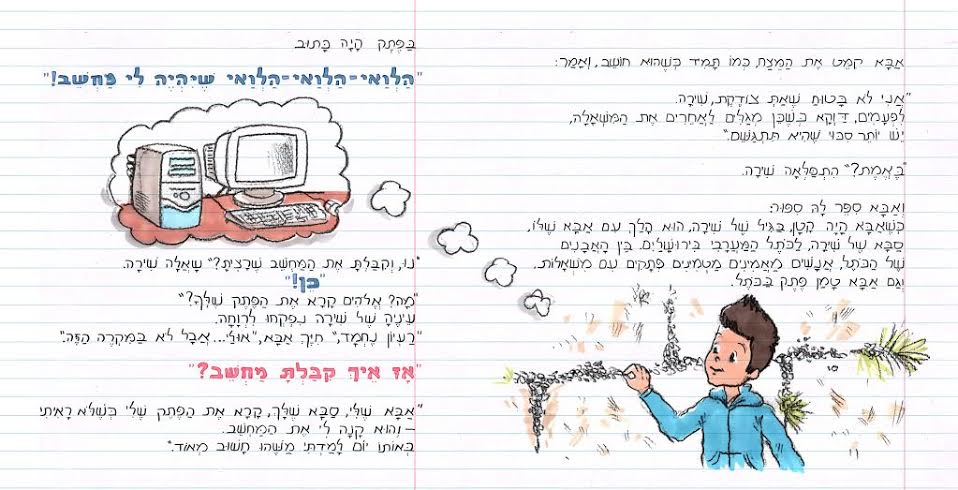 אַבָּא קִמֵּט אֶת הַמֵּצַח, כְּמוֹ תָּמִיד כְּשֶׁהוּא חוֹשֵׁב, וְאָמַר:
"אֲנִי לֹא בָּטוּחַ שֶׁאַתְּ צוֹדֶקֶת, שִׁירָה.
לִפְעָמִים, דַּוְקָא כְּשֶׁכֵּן מְגַלִּים לַאֲחֵרִים אֶת הַמִּשְׁאָלָה,
יֵשׁ יוֹתֵר סִכּוּי שֶׁהִיא תִּתְגַּשֵּׁם."
"בֶּאֱמֶת?" הִתְפַּלְּאָה שִׁירָה.
וְאַבָּא סִפֵּר לָהּ סִפּוּר:
כְּשֶׁאַבָּא הָיָה קָטָן, בַּגִּיל שֶׁל שִׁירָה, הוּא הָלַךְ עִם אַבָּא שֶׁלּוֹ,
סַבָּא שֶׁל שִׁירָה, לַכֹּתֶל הַמַּעֲרָבִי בִּירוּשָׁלַיִם. בֵּין הָאֲבָנִים
שֶׁל הַכֹּתֶל, אֲנָשִׁים מַאֲמִינִים מַטְמִינִים פְּתָקִים עִם מִשְׁאָלוֹת,
וְגַם אַבָּא טָמַן פֶּתֶק בַּכֹּתֶל.
בַּפֶּתֶק הָיָה כָּתוּב
"הַלְוַאי-הַלְוַאי-הַלְוַאי שֶׁיִּהְיֶה לִי מַחְשֵׁב!"
"נוּ, וְקִבַּלְתָּ אֶת הַמַּחְשֵׁב שֶׁרָצִיתָ?" שָׁאֲלָה שִׁירָה.
"כֵּן!"
"מָה? אֱלֹהִים קָרָא אֶת הַפֶּתֶק שֶׁלְּךָ?"
עֵינֶיהָ שֶׁל שִׁירָה נִפְקְחוּ לִרְוָחָה.
"רַעְיוֹן נֶחְמָד," חִיֵּךְ אַבָּא, "אוּלַי... אֲבָל לֹא בַּמִּקְרֶה הַזֶּה."
"אָז אֵיךְ קִבַּלְתָּ מַחְשֵׁב?"
"אַבָּא שֶׁלִּי, סַבָּא שֶׁלָּךְ, קָרָא אֶת הַפֶּתֶק שֶׁלִּי כְּשֶׁלֹּא רָאִיתִי
– וְהוּא קָנָה לִי אֶת הַמַּחְשֵׁב.
בְּאוֹתוֹ יוֹם לָמַדְתִּי מַשֶּׁהוּ חָשׁוּב מְאוֹד."